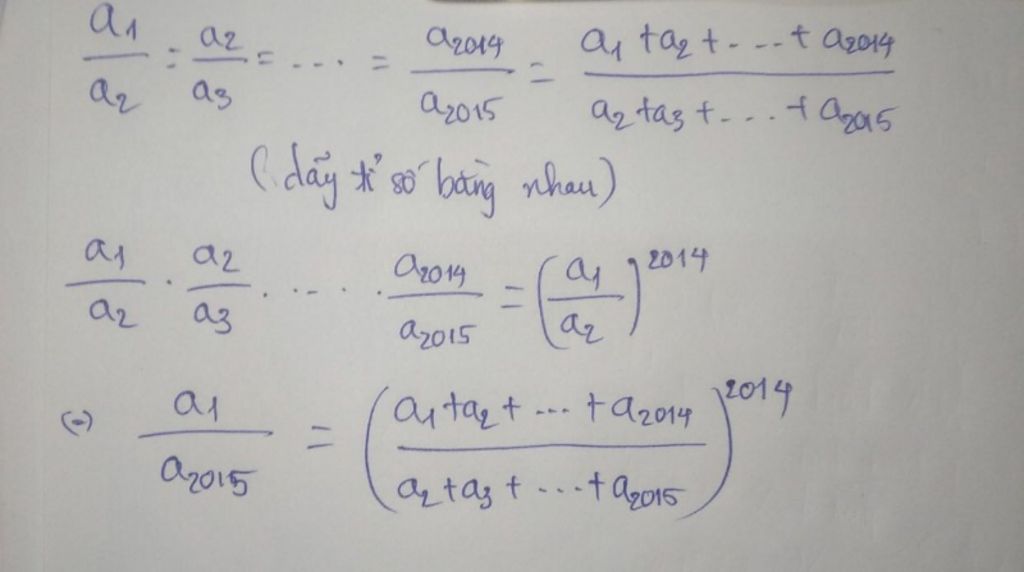 a1/a2 = a2/a3 = .... = a2014/a2015 = (a1 + a2 + .... + a2014)/(a2 + a3 + .... + a2015)
(dãy tỉ số bằng nhau)
a1/a2 . a2/a3 . .... . a2014/a2015 = (a1/a2)^2014
(=) a1/a2015 = ((a1 + a2 + .... + a2014)/(a2 + a3 + .... + a2015))^2014